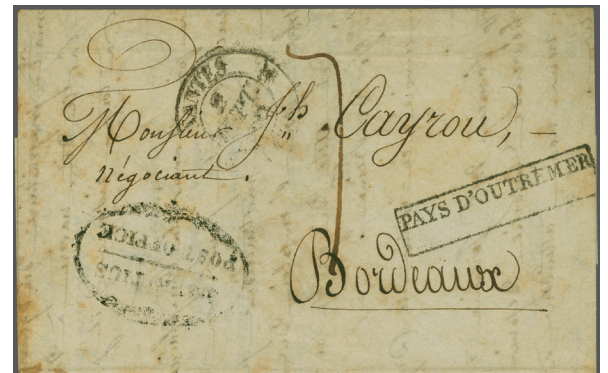 Monsieur Jh Cayrou,
négociant.
PAYS D'OUTREMER
POST OFFICE
Bordeaux